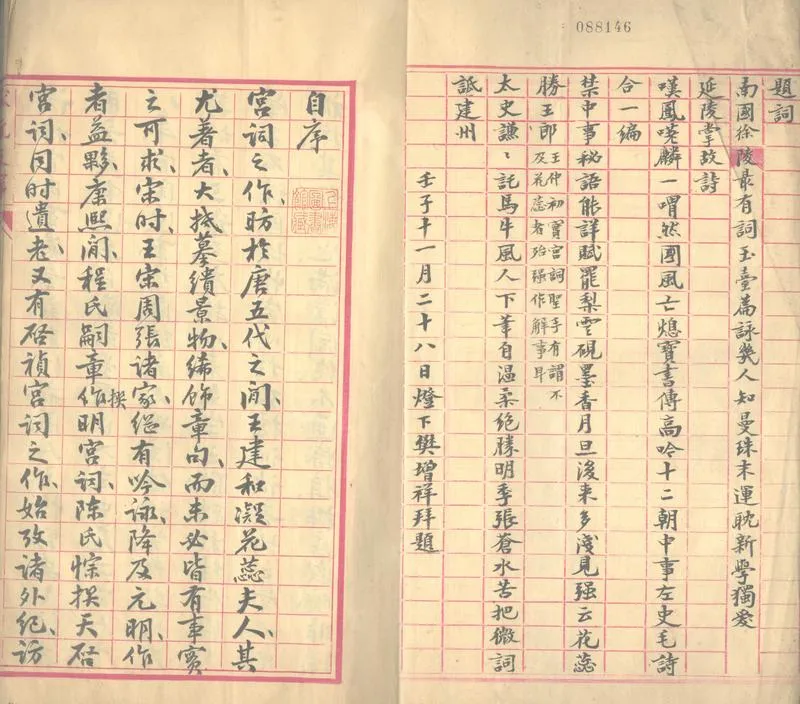 088146
題詞
南國徐陵最有詞玉臺篇詠幾人知曼珠末運耽新學獨爱
延陵掌故詩
嘆鳳嗟麟一喟然國風亡熄寶書傳高吟十二朝中事左史毛詩
合一編
禁中事秘語能詳賦罷梨雲硯墨香月旦後来多淺見强云花蕊
勝王郎
王仲初實宮詞聖手有謂不
及花蕊者殆强作解事早
太史謙〻託馬牛風人下筆自温柔絕勝明季張蒼水苦把微詞
詆建州
壬子十一月二十八日燈下樊增祥拜題
自序
宮詞之作、昉於唐五代之間、王建和凝花蕊夫人、其
尤著者、大抵摹繢景物、絺飾章句、而未必皆有事實
之可求、宋時、王宋周張諸家、縱有吟詠、降及元明、作
者益夥、康熙間、程氏嗣章作明宮詞、陳氏悰撰天啓
撰
宮詞、同時遺老、又有啓禎宮詞之作、始攷諸外紀、訪